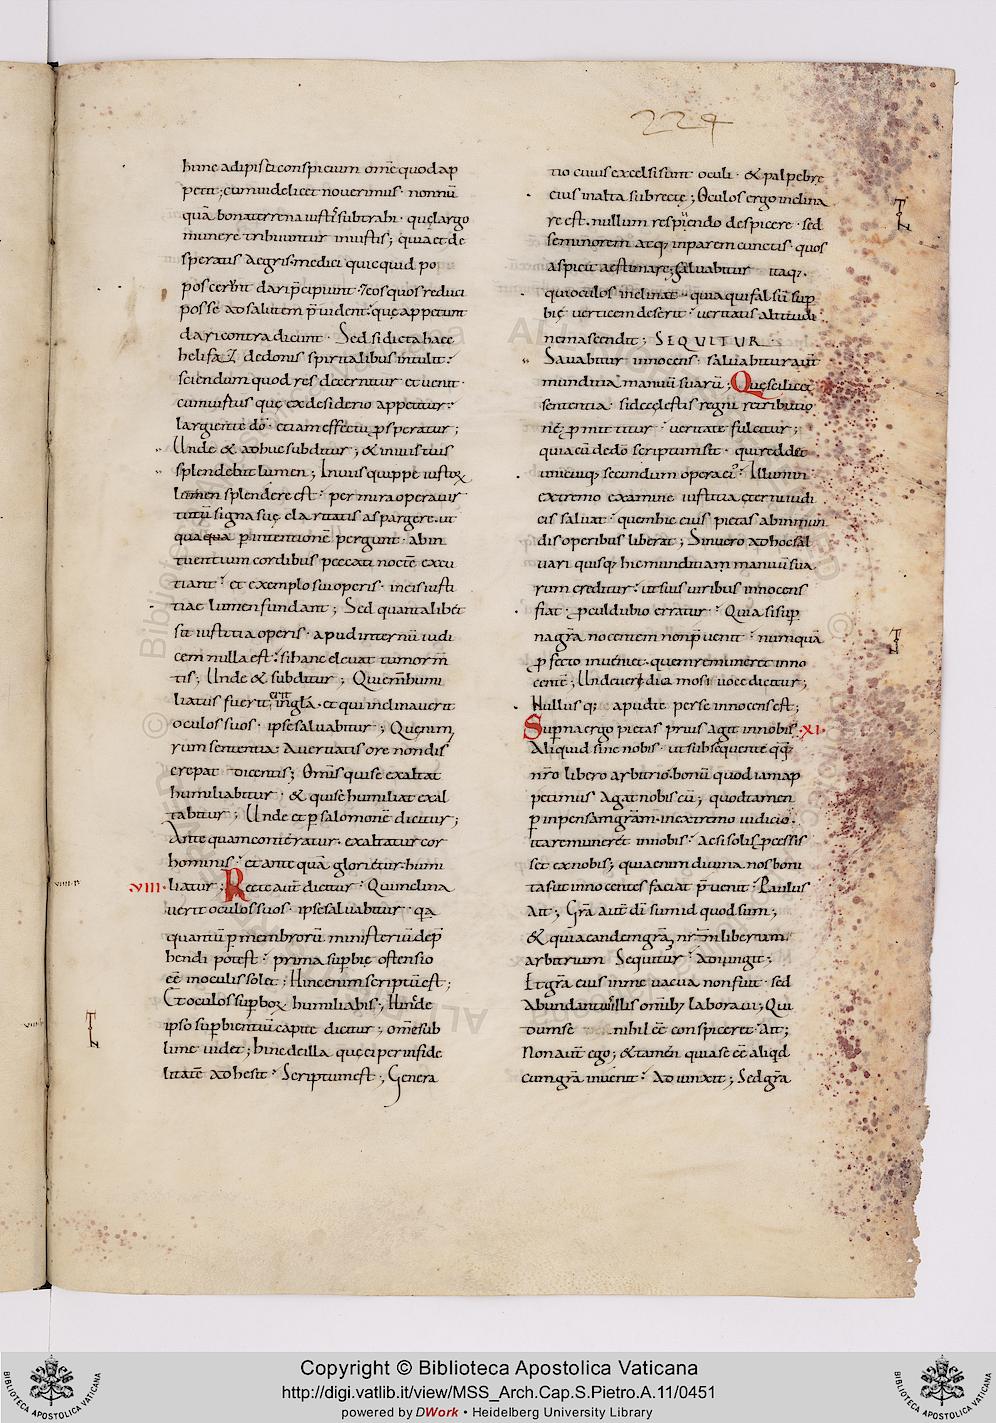 224
hunc adipisci conspicium om̄e quod ap
petit; cum uidelicet nouerimus · nonnū
quā bona terrena iustis subtrahi · quę largo
munere tribuuntur iniustis; quia et de
speratis aegris · medici quicquid po
poscerint dari p̄cipiunt · ⁊ eos quos reduci
posse ad salutem p̄uident · que appetunt
dari contradicunt · Sed si dicta haec
de donis spiritalibus intulit ·
sciendum quod res decernitur et uenit ·
cum iustus que ex desiderio appetitur ·
largiente dō · etiam effectu ꝑsperatur ;
Unde & adhuc subditur ; & in uiis tuis
splendebit lumen ; In uiis quippe iustoꝝ
lumen splendere est · per mira opera uir
tutū signa suę claritatis aspargere · ut
quaqua p intentionē pergunt · ab in
tuentium cordibus peccati noctē excu
tiant · et exemplo sui operis · in eis iusti
tiae lumen fundant ; Sed quantalibet
sit iustitia operis · apud internū iudi
cem nulla est · si hanc eleuat tumor m̄
tis ; Unde & subditur ; Qui enī humi
liatus fuerit erit in gl̄a · et qui inclinauerit
oculos suos · ipse saluabitur ; Que nim
rum sententia · a ueritatis ore non dis
crepat dicentis ; Om̄is qui se exaltat
humiliabitur · & qui se humiliat exal
tabitur ; Unde et p salomonē dicitur ;
Ante quam conteratur · exaltatur cor
hominis · et ante quā glorietur · humi
·VIII· liatur ; Recte aut̄ dicitur · Qui inclina
uerit oculos suos · ipse saluabitur · q̄a
quantū p membrorū ministeriū dep̄
hendi potest · prima sup̄bię ostensio
eē in oculis solet ; Hinc enim scriptū est ;
Et oculos sup̄boꝝ humiliabis ; Hinc de
ipso sup̄bientiū capite dicitur ; om̄e sub
lime uidet ; hinc de illa quę ei per infide
litatē adhesit · Scriptum est ; Genera
tio cuius excelsi sunt oculi · & palpebrę
eius in alta subrectę ; Oculos ergo inclina
re est · nullum respiciendo despicere · sed
se minorem atq; in parem cunctis · quos
aspicit aestimare ; Saluabitur itaq; ·
qui oculos inclinat · quia qui falsū sup̄
bię uerticem deserit · ueritatis altitudi
nem ascendit ; SEQUITUR
Saluabitur innocens · saluabitur aut̄
munditia manuū suarū ; Quę scilicet
sententia · si de cęlestis regni retributio
nē promittitur · ueritate fulcitur ;
quia cū de dō scriptum sit · qui reddet
unicuiq; secundum opera ei; · Illum in
extremo examine iustitia ęterni iudi
cis saluat · quem hic eius pietas ab inmun
dis operibus liberat ; Sin uero ad hoc sal
uari quisq; hic munditiam manuū sua
rum creditur · ut suis uiribus innocens
fiat · ꝓculdubio erratur · Quia si sup̄
na gr̄a nocentem non p̄uenit · numquā
ꝓfecto inueniet · quem remuneret inno
centē ; Unde ueridica mosi uoce dicitur ;
Nullusq; apud te per se innocens est ;
Sup̄na ergo pietas prius agit in nobis ·XI·
Aliquid sine nobis · ut subsequente q̄q;
nr̄o libero arbitrio · bonū quod iam ap
petimus agat nobiscū ; quod tamen
p inpensam gr̄am · in extremo iudicio ·
ita remuneret in nobis · ac si solis p̄cessis
set ex nobis ; quia enim diuina nos boni
tas ut innocentes faciat p̄uenit · Paulus
Ait ; Gr̄a aut̄ dī sum id quod sum ;
& quia eandem gr̄a nr̄m̄ liberum
arbitrium Sequitur · adiungit ;
Et gr̄a eius in me uacua non fuit · sed
Abundantius illis om̄ib; laboraui ; Qui
dum se nihil eē conspiceret · Ait ;
Non aut̄ ego ; & tamen quia se eē aliqd
cum gr̄a inuenit · Adiunxit ; Sed gr̄a
Copyright © Biblioteca Apostolica Vaticana
http://digi.vatlib.it/view/MSS_Arch.Cap.S.Pietro.A.11/0451
powered by DWork • Heidelberg University Library
BIBLIOTECA APOSTOLICA VATICANA
BIBLIOTECA APOSTOLICA VATICANA